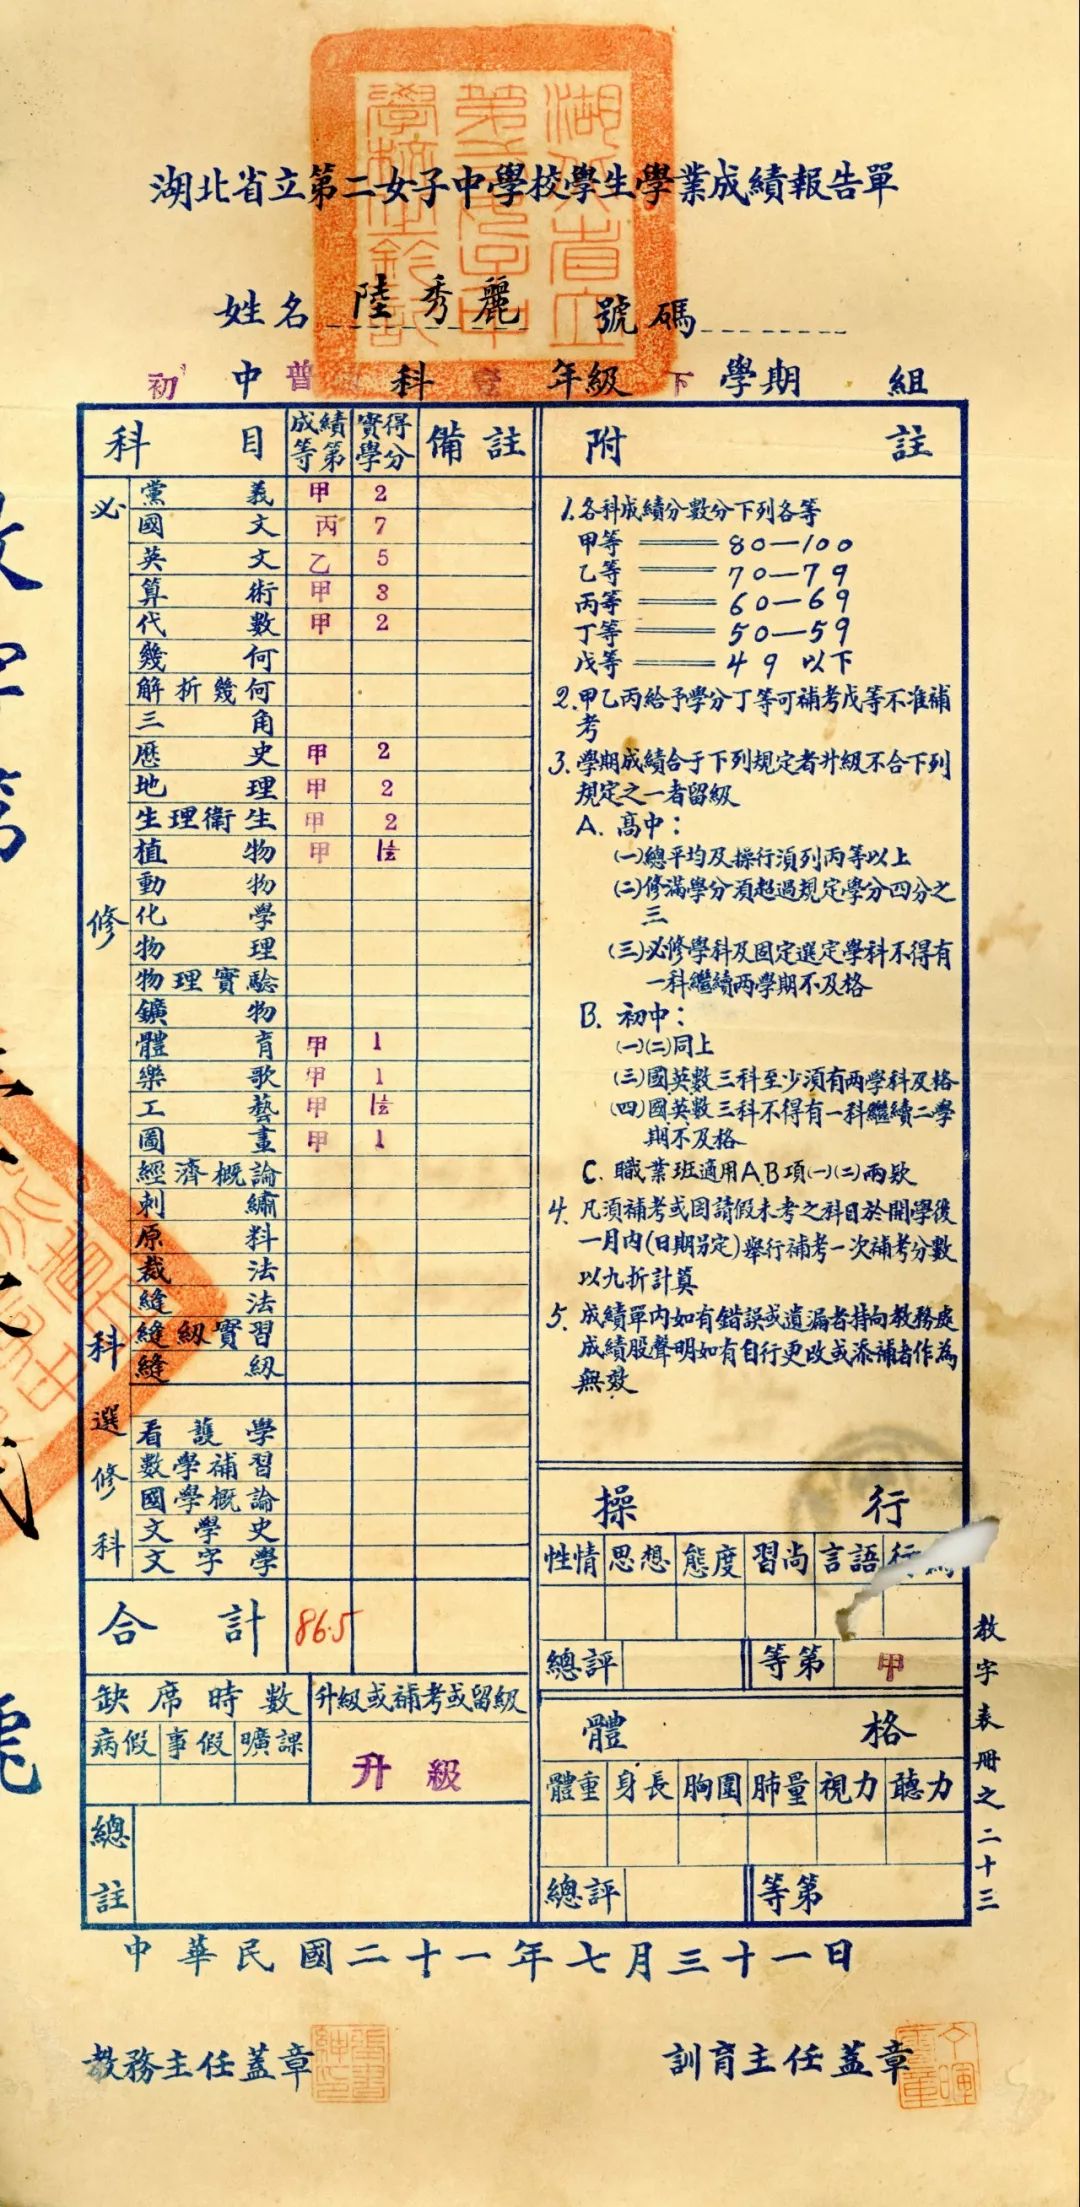 湖北省立第二女子中學校學生學業成績報告單
姓名 陸秀麗 號碼
初中普 科 年級下學期 組
科目 成績等第 實得學分 備註
必修科
黨義 甲 2
國文 丙 7
英文 乙 5
算術 甲 3
代數 甲 2
幾何
解析幾何
三角
歷史 甲 2
地理 甲 2
生理衛生 甲 2
植物 甲 1½
動物
化學
物理
物理實驗
鑛物
體育 甲 1
樂歌 甲 1
工藝 甲 1½
圖畫 甲 1
經濟概論
刺繡
原料
裁法
縫法
縫紉實習
縫紉
選修科
看護學
數學補習
國學概論
文學史
文字學
合計 86.5
缺席時數 升級或補考或留級
病假 事假 曠課
升級
總註
附註
1.各科成績分數分下列各等
甲等 80—100
乙等 70—79
丙等 60—69
丁等 50—59
戊等 49以下
2.甲乙丙給予學分丁等可補考戊等不准補
考
3.學期成績合于下列規定者升級不合下列
規定之一者留級
A. 高中:
(一)總平均及操行須列丙等以上
(二)修滿學分須超過規定學分四分之
三
(三)必修學科及固定選定學科不得有
一科繼續兩學期不及格
B. 初中:
(一)(二)同上
(三)國英數三科至少須有兩學科及格
(四)國英數三科不得有一科繼續二學
期不及格
C. 職業班適用A.B項(一)(二)兩欵
4. 凡須補考或因請假未考之科目於開學後
一月内(日期另定)舉行補考一次補考分數
以九折計算
5. 成績單内如有錯誤或遺漏者持向教務處
成績股聲明如有自行更改或添補者作為
無效
操行
性情 思想 態度 習尚 言語 行
總評 等第 甲
體格
體重 身長 胸圍 肺量 視力 聽力
總評 等第
教字表冊之二十三
中華民國二十一年七月三十一日
教務主任蓋章
訓育主任蓋章